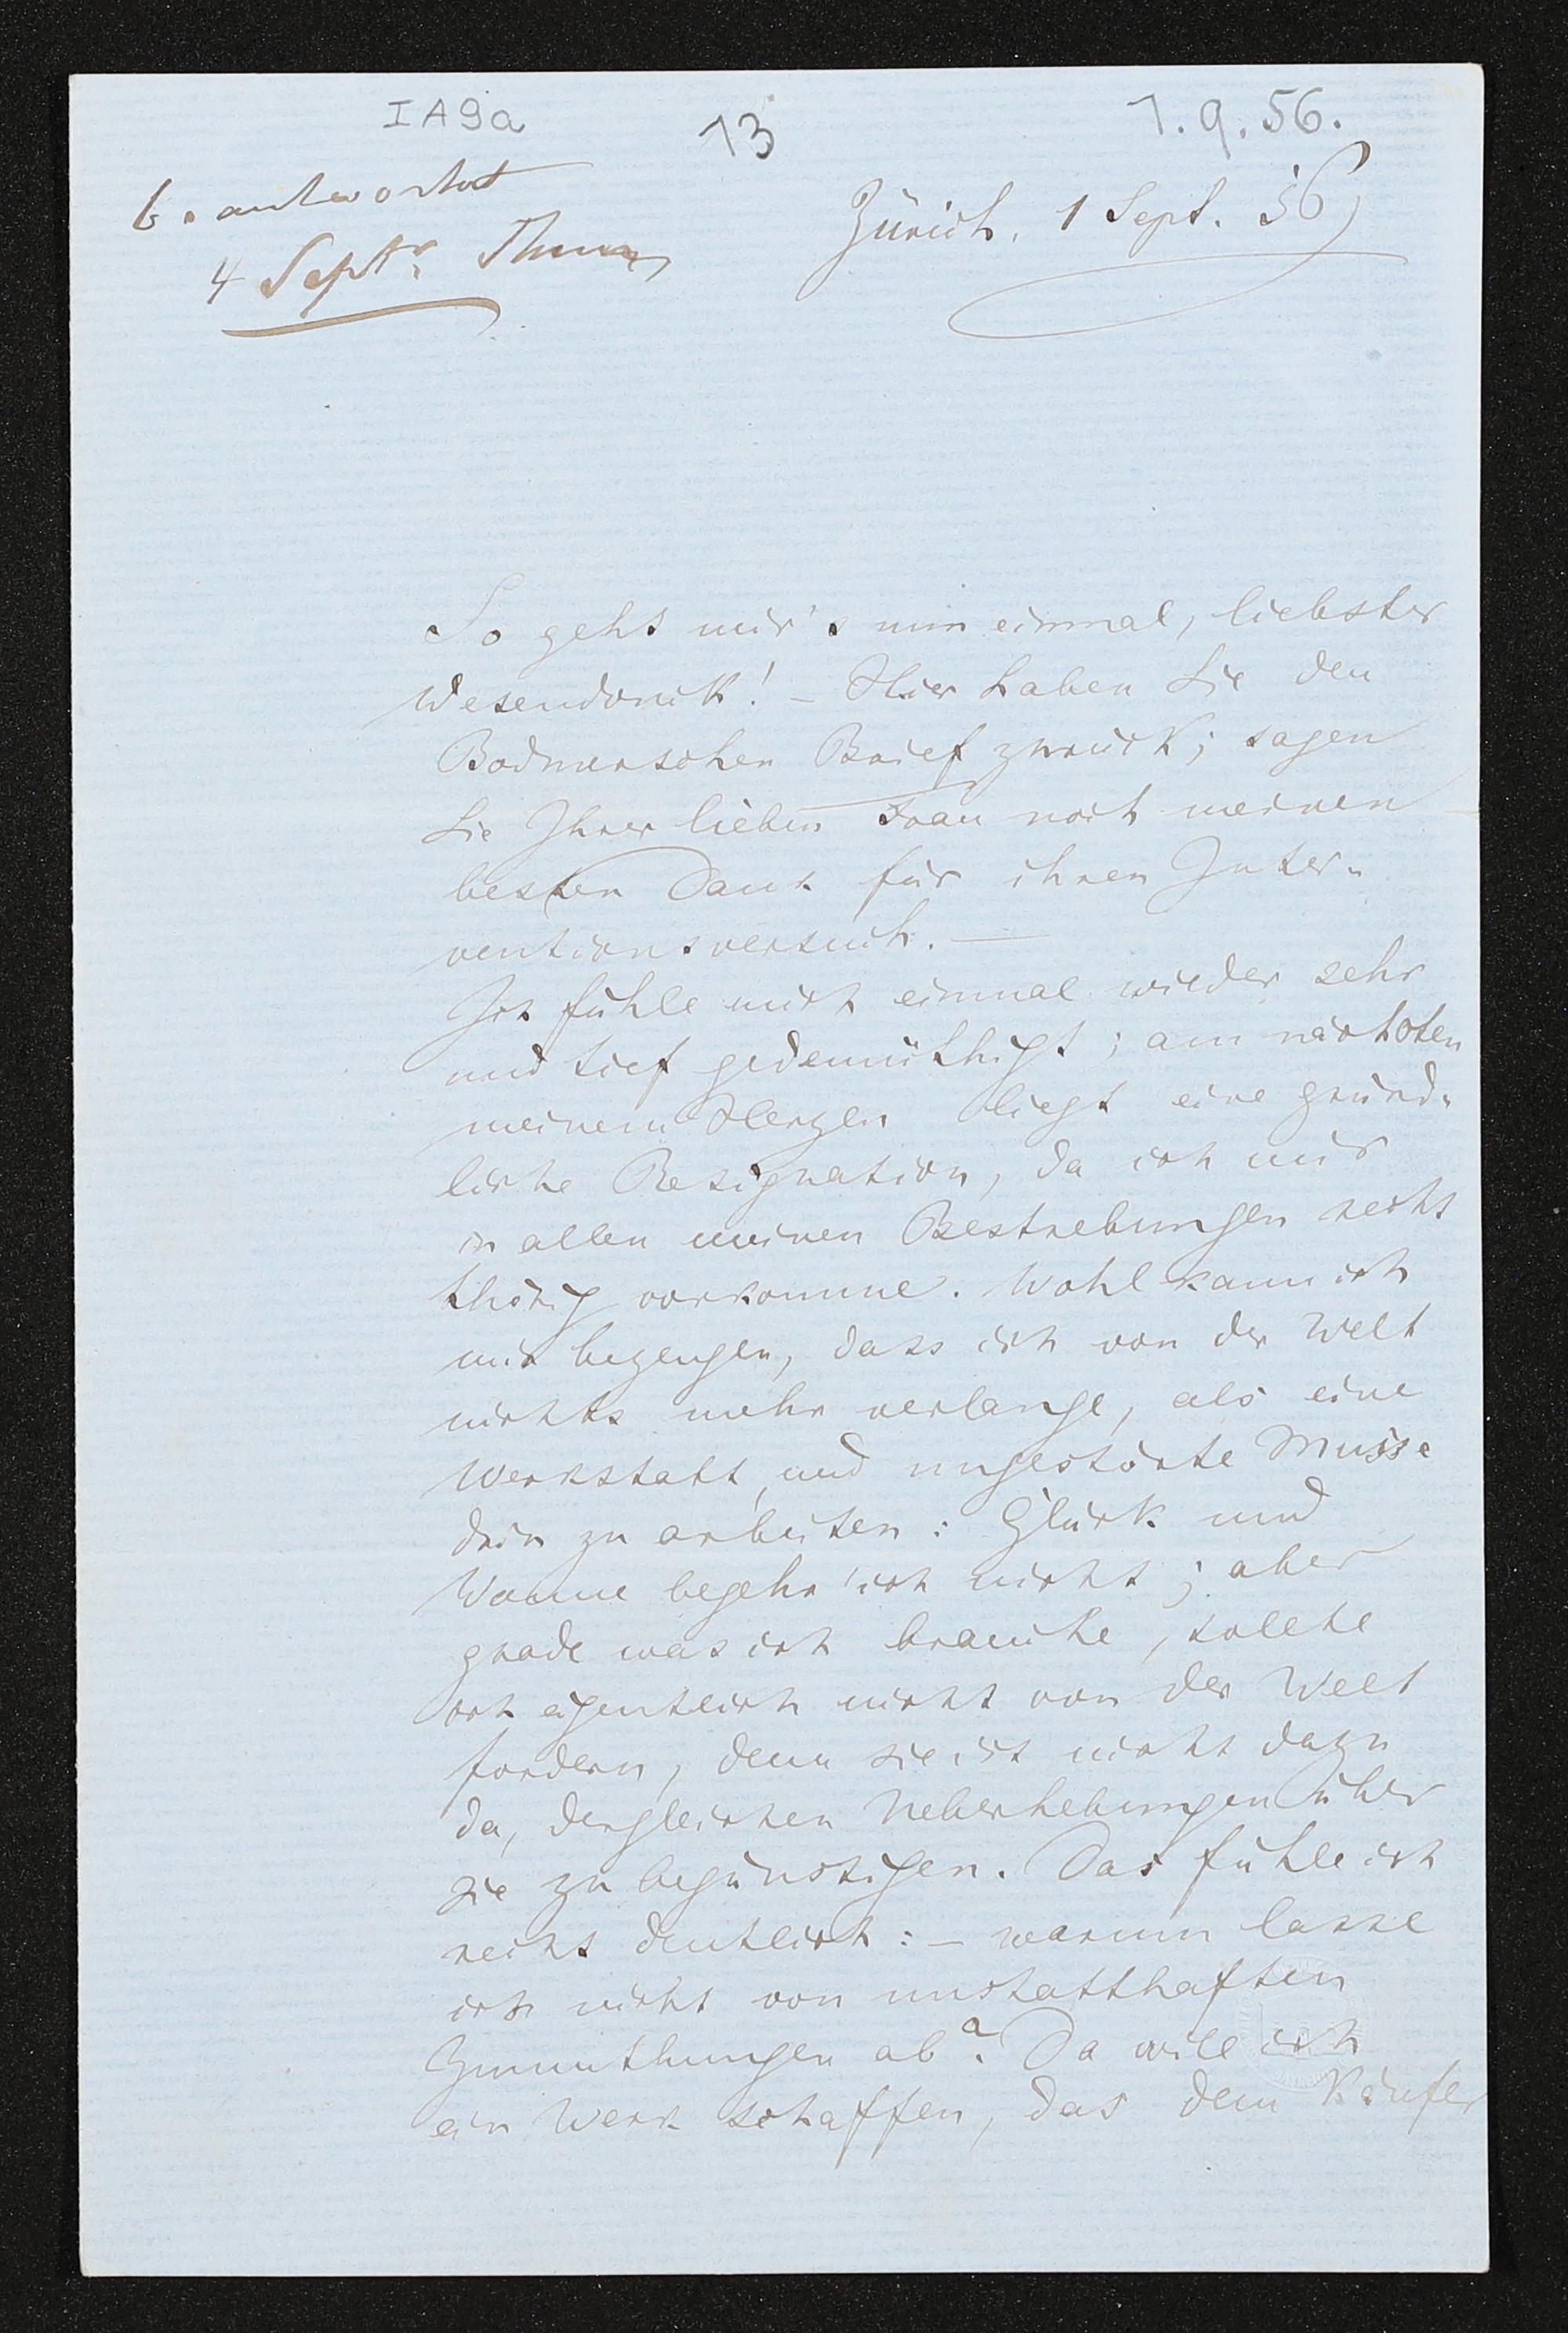 IA9a
13
1.9.56.
beantwortet
4 Septr. Thun
Zürich, 1 Sept. 56
So geht mir's nun einmal, liebster
Wesendonck! – Hier haben Sie den
Bodmerschen Brief zurück; sagen
Sie Ihrer lieben Frau noch meinen
besten Dank für ihren Inter-
ventionsversuch. —
Ich fühle mich einmal wieder sehr
und tief gedemüthigt; am nächsten
meinem Herzen liegt eine gründ-
liche Resignation, da ich mir
in allen meinen Bestrebungen recht
thörig vorkomme. Wohl kann ich
mir bezeugen, dass ich von der Welt
nichts mehr verlange, als eine
Werkstatt, und ungestörte Musse
drin zu arbeiten: Glück und
Wonne begehr' ich nicht; aber
grade was ich brauche, sollte
ich eigentlich nicht von der Welt
fordern, denn sie ist nicht dazu
da, dergleichen Ueberhebungen über
sie zu begünstigen. Das fühle ich
recht deutlich: – warum lasse
ich nicht von unstatthaften
Zumuthungen ab? Da will ich
ein Werk schaffen, das dem Käufer